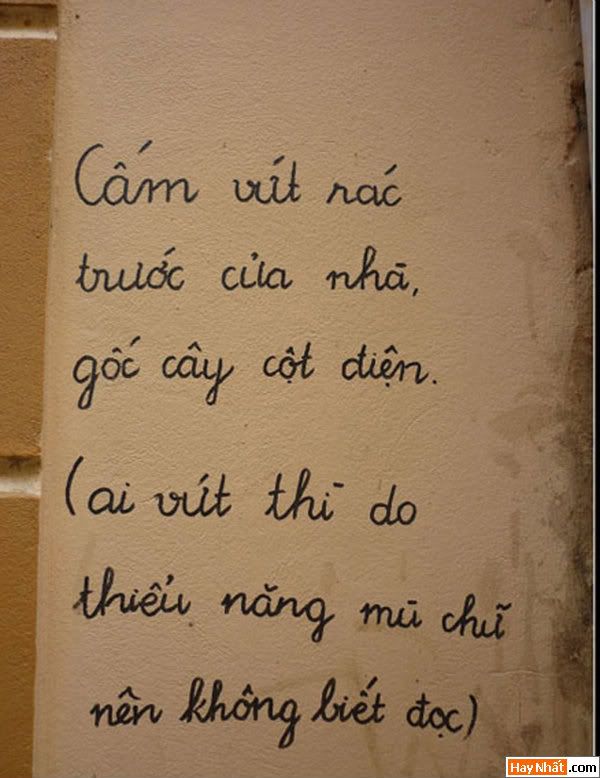 Cấm vứt rác
trước cửa nhà,
gốc cây cột điện.
(ai vứt thì do
thiểu năng mù chữ
nên không biết đọc)
HayNhất.com